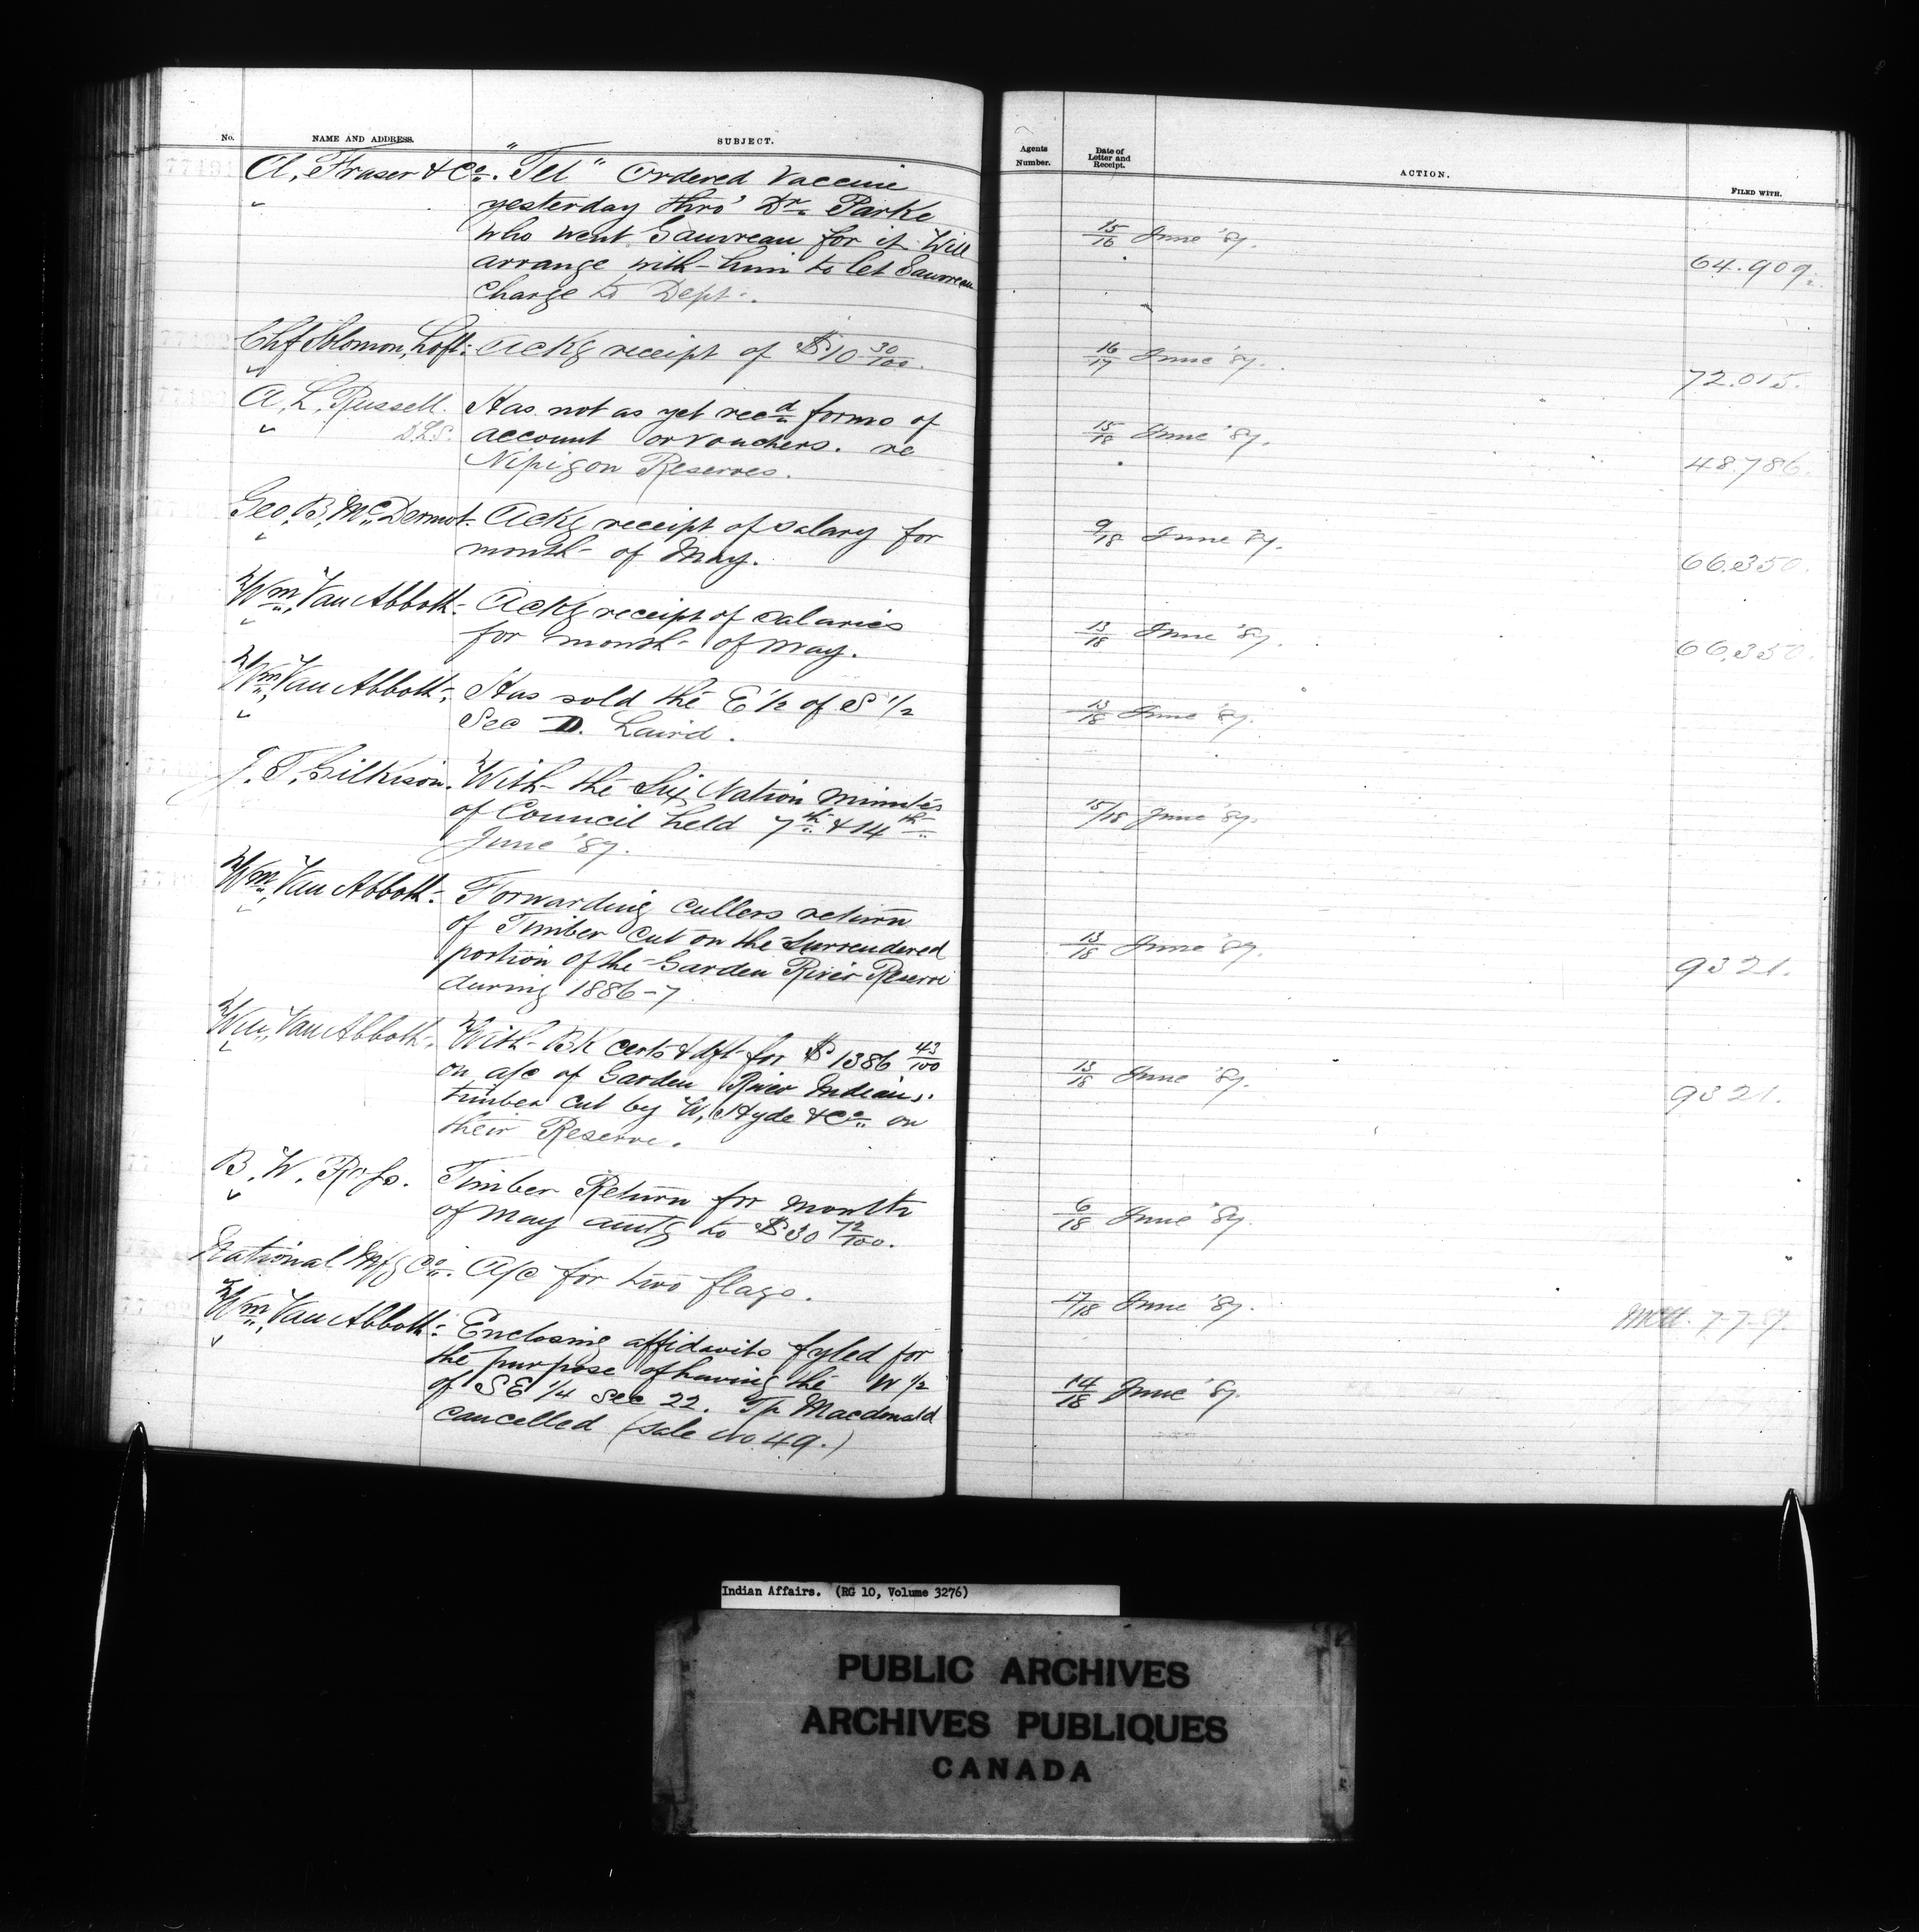 No. NAME AND ADDRESS. SUBJECT.
A, Fraser & Co. "Tel" Ordered Vaccine
yesterday thro' Dr. Parke
who went Gauvreau for it Will
arrange with him to let Gauvreau
charge to Dept.
Chf Solomon, Loft. Ackg receipt of $10 30/100.
A, L, Russell. Has not as yet recd forms of
D.L.S. account or vouchers. re
Nipigon Reserves.
Geo, B, McDermot. Ackg receipt of salary for
month of May.
Wm, Van Abbott. Ackg receipt of salaries
for month of May.
Wm, Van Abbott. Has sold the E 1/2 of S 1/2
Sec D. Laird.
J. T. Gilkison. With the Six Nation minutes
of Council held 7th & 14th
June '87.
Wm, Van Abbott. Forwarding cullers return
of Timber cut on the Surrendered
portion of the Garden River Reserve
during 1886-7
Wm, Van Abbott. With BK certs & dft for $1386 43/100
on a/c of Garden River Indians.
timber cut by W, Hyde & Co. on
their Reserve.
B. W. Ross. Timber Return for month
of May amtg to $30 72/100.
National Mfg Co. A/c for two flags.
Wm, Van Abbott. Enclosing affidavits fyled for
the purpose of having the W 1/2
of SE 1/4 Sec 22. Tp Macdonald
cancelled (Sale No. 49.)
Agents Number. Date of Letter and Receipt. ACTION. FILED WITH.
15/16 June '87. 64.909.
16/17 June '87. 72.015.
15/18 June '87. 48.786.
9/18 June '87. 66.350.
13/18 June '87. 66,350.
13/18 June '87.
15/18 June '87.
13/18 June '87. 9321.
13/18 June '87. 9321.
6/18 June '87.
17/18 June '87. 7-7-87.
14/18 June '87.
Indian Affairs. (RG 10, Volume 3276)
PUBLIC ARCHIVES
ARCHIVES PUBLIQUES
CANADA